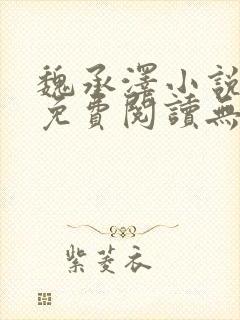 魏承澤小說
免費閱讀無
紫菱衣